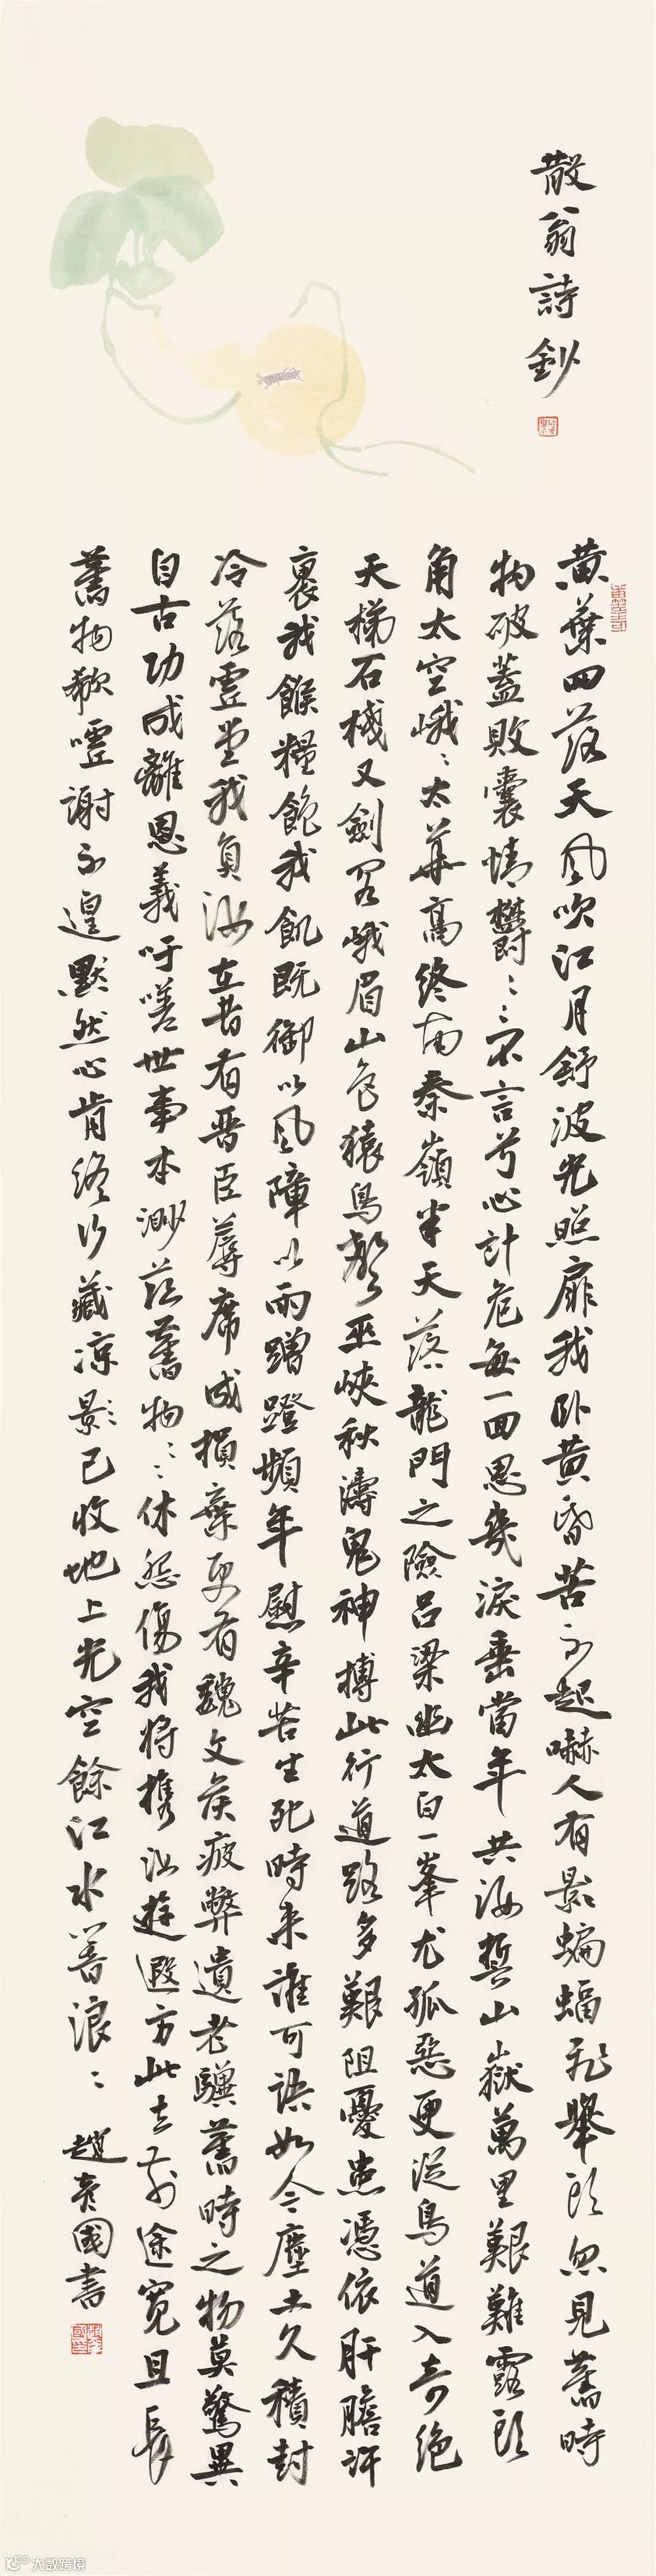 散翁詩鈔
黄葉四落天風吹江月舒波光照扉我卧黄昏苦不起嚇人有影蝙蝠飛舉頭忽見舊時
物破蓋敗囊情鬱鬱:不言兮心計危每一回思幾淚垂當年共汝誓山嶽萬里艱難露頭
角太空峨:太華高終南秦嶺半天落龍門之險吕梁幽太白一峯尤孤惡更從鳥道入奇絶
天梯石棧又劍閣峨眉山色猿鳥愁巫峽秋濤鬼神搏此行道路多艱阻憂患憑依肝膽許
裹我餱糧飽我飢既御以風障以雨蹭蹬頻年慰辛苦生死時来誰可語如今塵土久積封
冷落虚堂我負汝在昔有晋臣蓐席咸損棄更有魏文侯疲弊遺老驥舊時之物莫驚異
自古功成離恩義吁嗟世事本渺茫舊物::休怨傷我將携汝遊遐方此去前途寬且長
舊物欷噓謝不遑默然心肯終行藏凉影已收地上光空餘江水著浪:
趙彦國書
大數跨境